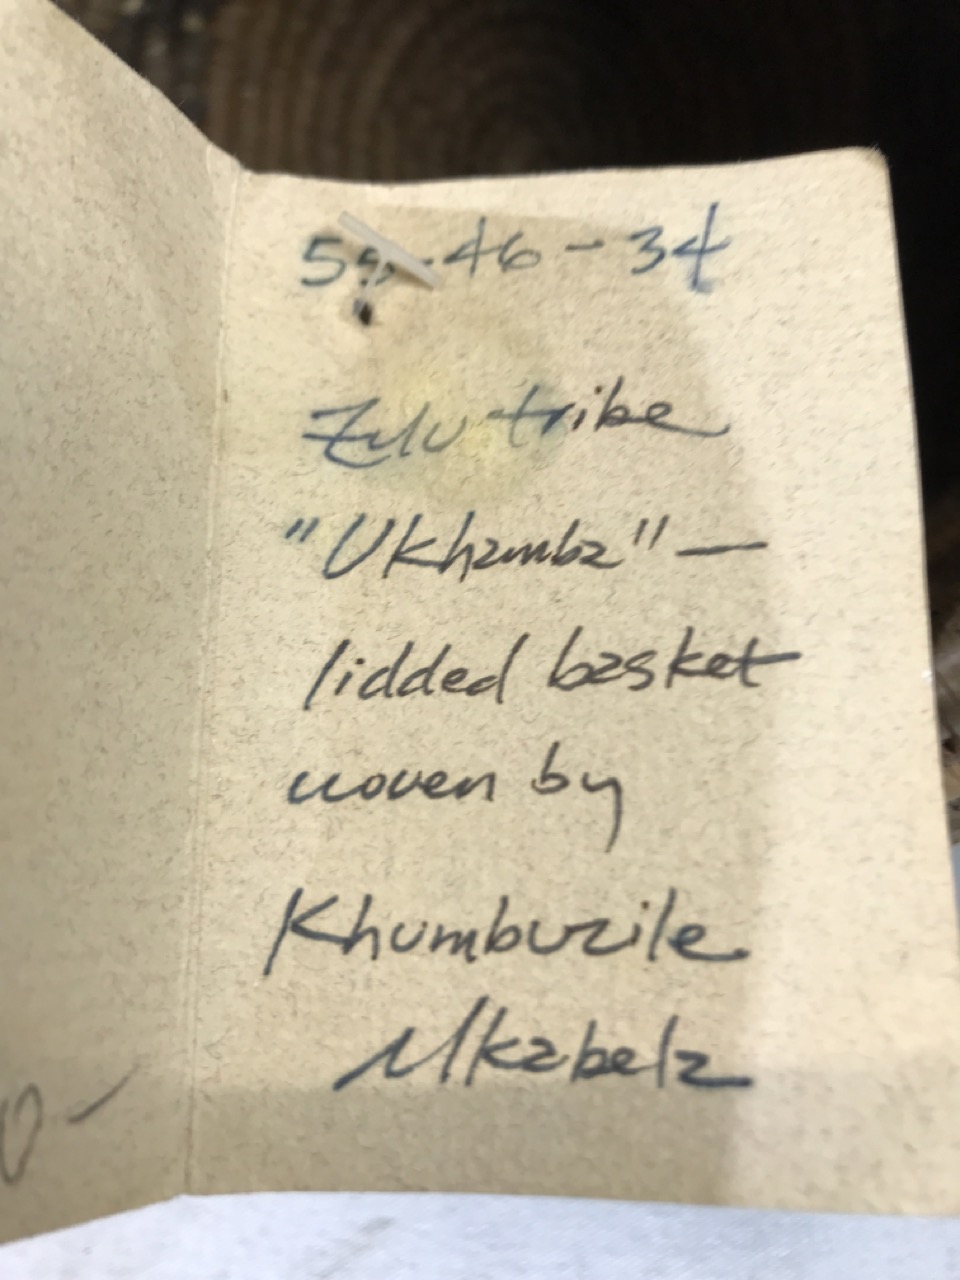 55-46-34
Zulu tribe
"Ukhamba" —
lidded basket
woven by
Khumbuzile
Mkabela
0-